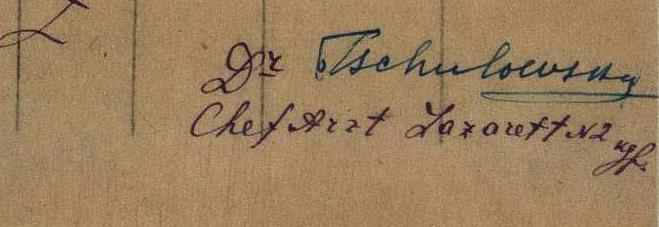 Dr Tschulowsky
Chef Arzt Lazarett N2 kgf.